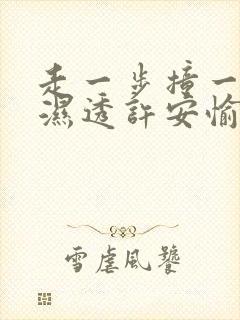 走一步撞一
濕透許安愉
雪虐風饕